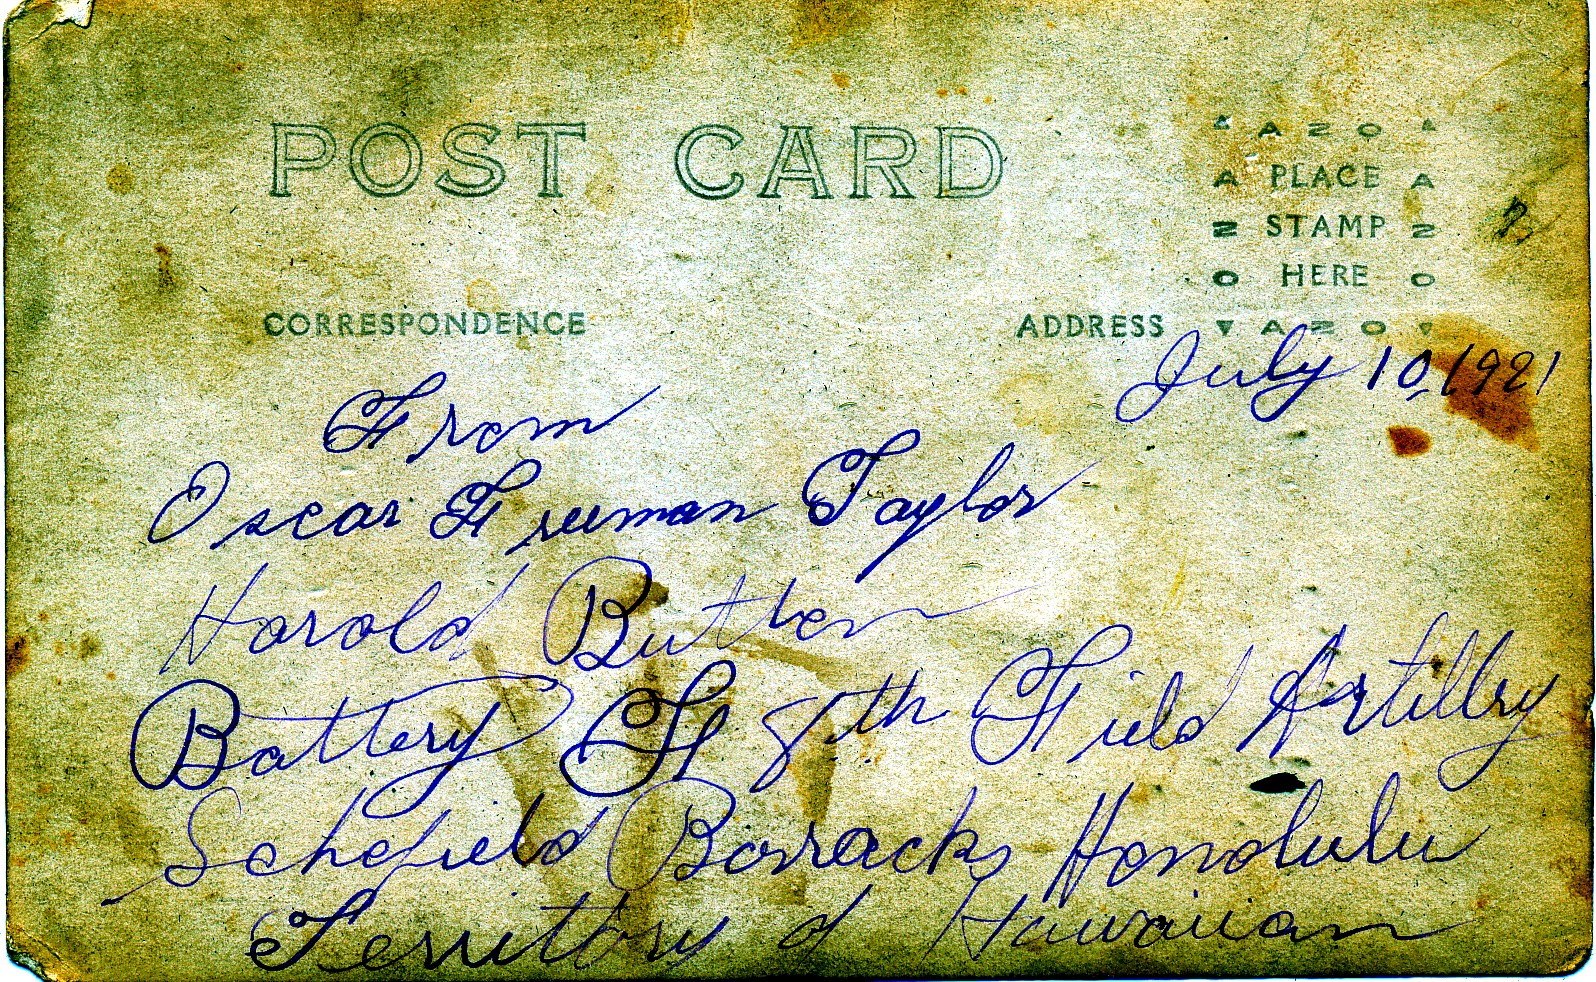 POST CARD
▲ A Z O ▲
A PLACE A
Z STAMP Z
O HERE O
▼ A Z O ▼
CORRESPONDENCE
ADDRESS
July 10, 1921
From
Oscar Freeman Taylor
Harold
Battery F 8th Field Artillry
Schofield Barracks Honolulu
Territory of Hawaiian